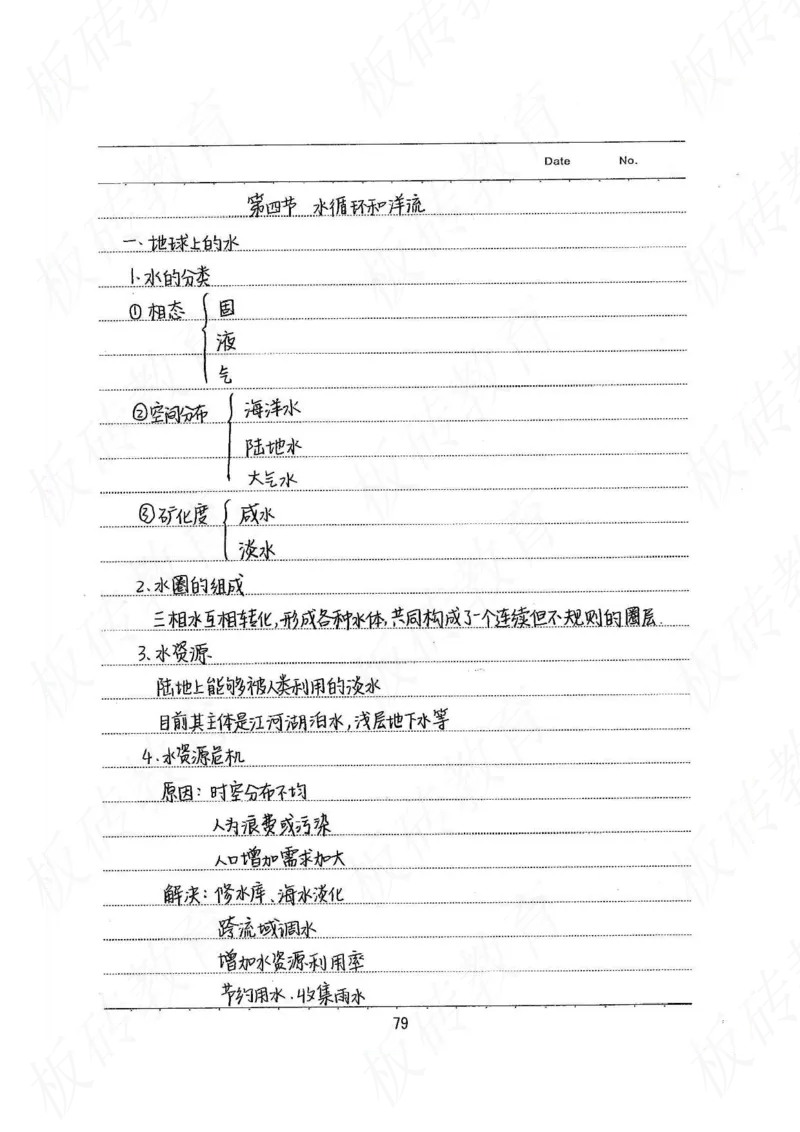 Date No.
第四节 水循环和洋流
一、地球上的水
1.水的分类
①相态 { 固
液
气
②空间分布 { 海洋水
陆地水
大气水
③矿化度 { 咸水
淡水
2.水圈的组成
三相水互相转化,形成各种水体,共同构成了一个连续但不规则的圈层.
3.水资源.
陆地上能够被人类利用的淡水
目前其主体是江河湖泊水,浅层地下水等
4.水资源危机
原因:时空分布不均
人为浪费或污染
人口增加需求加大
解决:修水库、海水淡化
跨流域调水
增加水资源利用率
节约用水.收集雨水
79
板砖教育